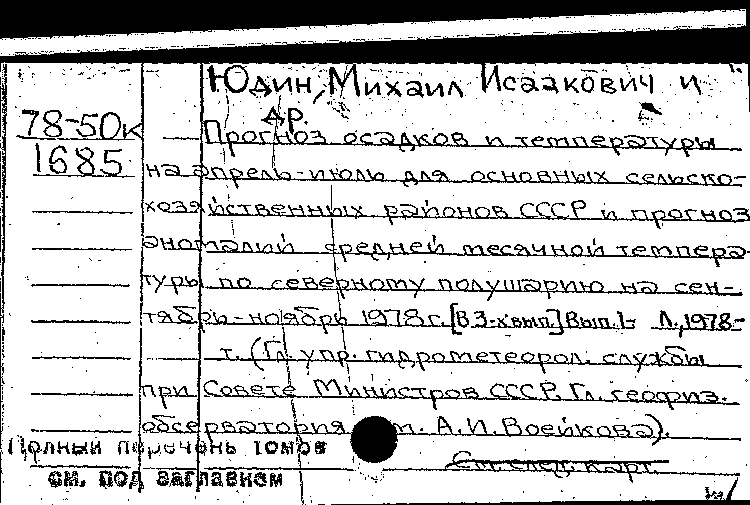 Юдин, Михаил Исаакович и
др.
78-50к
1685
Прогноз осадков и температуры
на апрель-июль для основных сельско-
хозяйственных районов СССР и прогноз
аномалий средней месячной темпера-
туры по северному полушарию на сен-
тябрь-ноябрь 1978 г. [В 3-х вып.] Вып. 1- Л., 1978-
т. (Гл. упр. гидрометеорол. службы
при Совете Министров СССР. Гл. геофиз.
обсерватория А.И. Воейкова).
Полный перечень томов
см. под заглавием
См. след. карт.